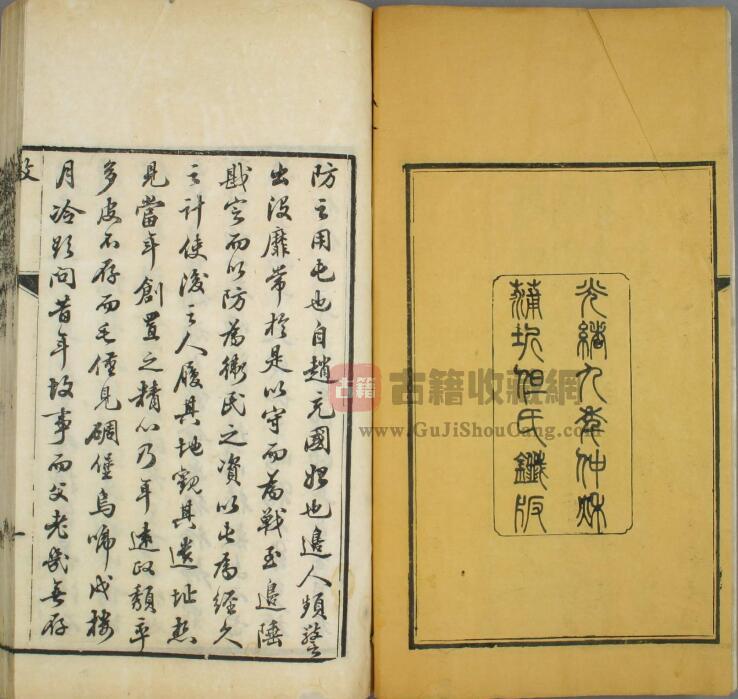 光緒九年仲秋
蒲圻但氏鐫版
防之用屯也自趙充國始也邊人頻警
出沒靡常於是以守而為戰至邊陲
戡定而以防為衛民之資以屯為經久
之計使後之人履其地觀其遺址想
見當年創置之精心乃年遠政頹率
多皮不存而毛僅見碉堡烏啼戍樓
月冷問昔年故事而父老幾無存
古籍 古籍收藏網
www.GuJiShouCang.com